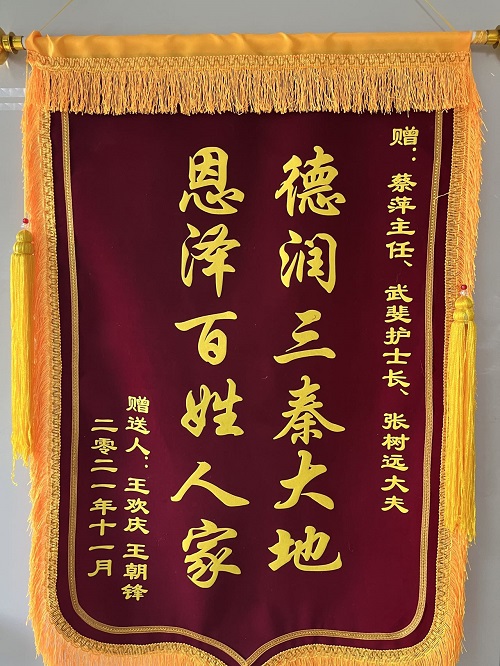 赠：蔡萍主任、武斐护士长、张树远大夫
德润三秦大地
恩泽百姓人家
赠送人：王欢庆 王朝锋
二零二一年十一月